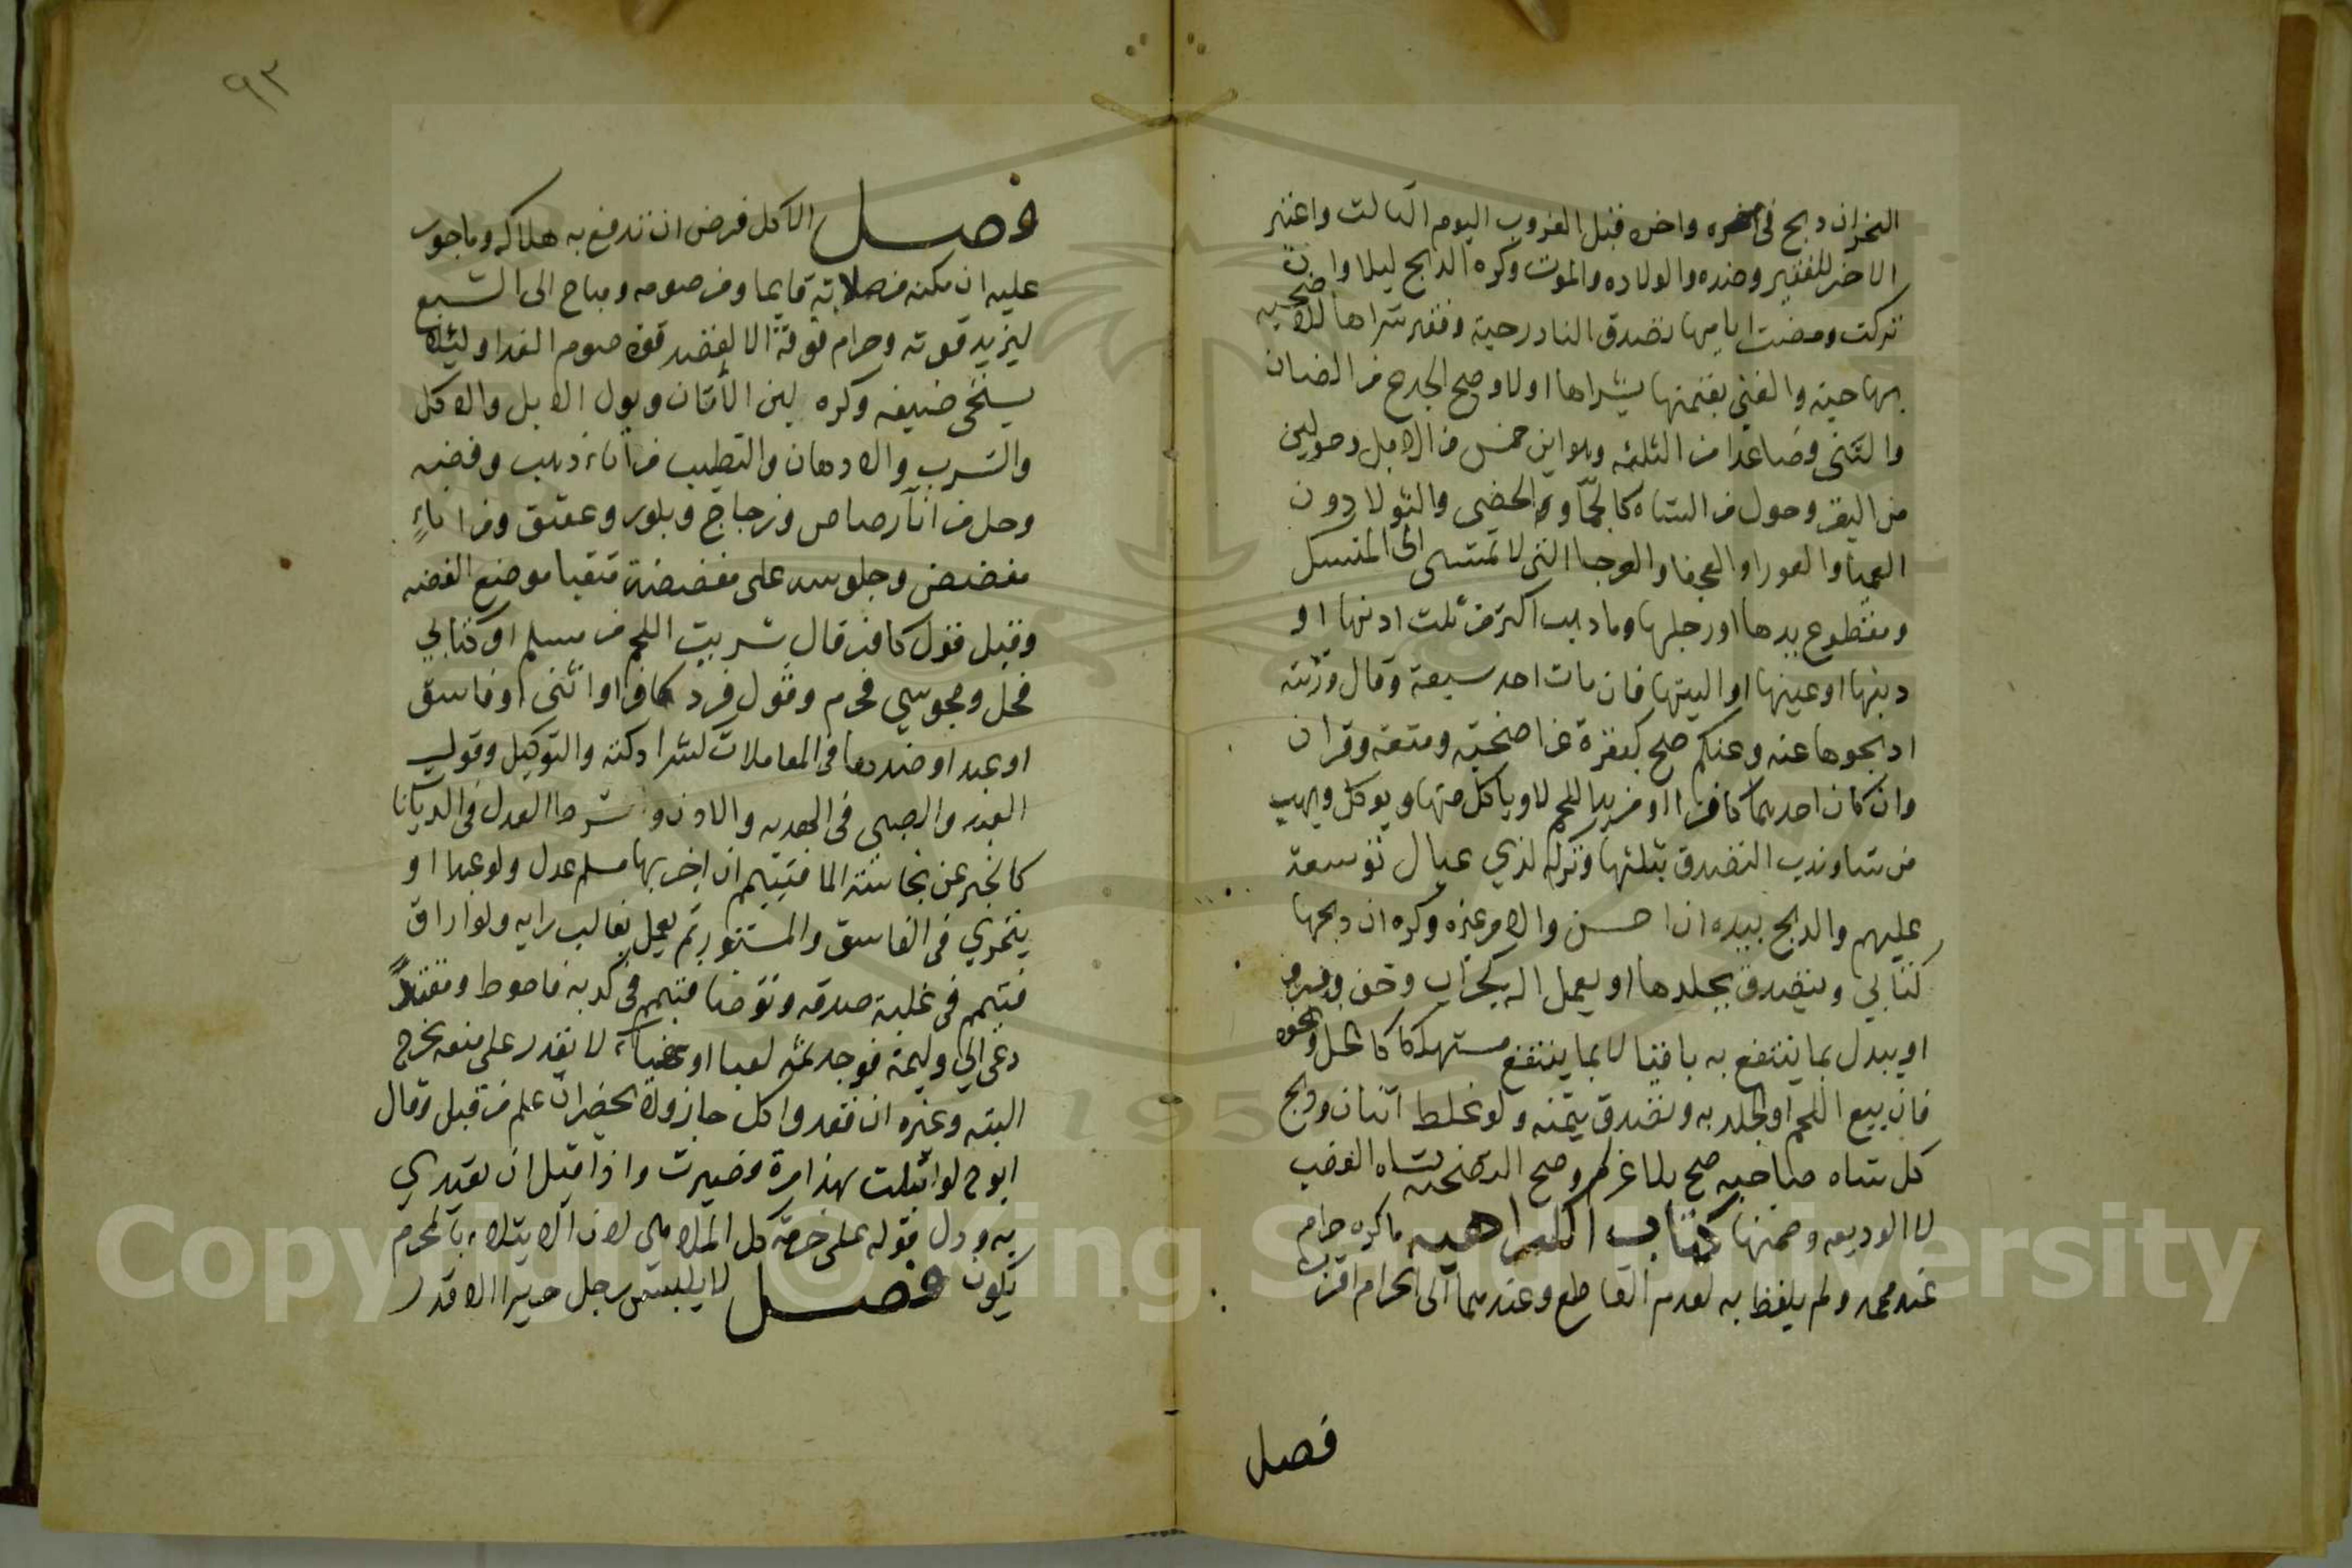 النحر ان دبح فى غيره واخره قبل الغروب اليوم الثالث واعتبر
الاخر للفقير وضده والولاده والموت وكره الذبح ليلا وان
تركت ومضت ايامها تصدق النادر حية وفقير شراها للاضحيه
بها حيه والغنى بقيمتها شراها اولا وصح الجدع من الضان
والثنى وصاعدا من الثلثه وهو ابن خمس من الابل وحولين
من البقر وحول من الشاه كالجما والخصى والثولا دون
العميا والعورا والعجفا والعرجا التى لا تمشى الى المنسك
ومقطوع يدها او رجلها وما دهب اكثر من ثلث ادنها او
دنبها او عينها او اليتها فان مات احد سبعة وقال ورثته
ادبحوها عنه وعنكم صح كبقرة عن اضحية ومتعة وقران
وان كان احدهما كافرا او مريد اللحم لا وياكل منها ويوكل ويهب
من شا وندب التصدق بثلثها وتركه لذي عيال توسعة
عليهم والدبح بيده ان احسن والا مر غيره وكره ان دبحها
كتابي ويتصدق بجلدها او يعمل اله كجراب وخف وفرو
او يبدل بما ينتفع به باقيا لا بما ينتفع مستهلكا كالخل ونحوه
فان بيع اللحم او الجلد به تصدق بثمنه ولو غلط اثنان ودبح
كل شاه صاحبه صح بلا غرم وصح التضحيه بشاه الغصب
لا الوديعه وضمنها كتاب الكراهيه ما كره حرام
عند محمد ولم يلفظ به لعدم القاطع وعندهما الى الحرام اقرب
فصل
٩٣
فصل الاكل فرض ان تدفع به هلاكه وماجور
عليه ان مكنه من صلاته قايما ومن صومه ومباح الى الشبع
ليزيد قوته وحرام فوقة الا لقصد قوة صوم الغد او ليلا
يستحى ضيفه وكره لبن الأتان وبول الابل والاكل
والشرب والادهان والتطيب من اناء دهب وفضه
وحل من انآ رصاص وزجاج وبلور وعقيق ومن اناءٍ
مفضض وجلوسه على مفضضة متقيا موضع الفضه
وقبل قول كافر قال شريت اللحم من مسلم او كتابي
فحل ومجوسي فحرم وقول فرد كافر او انثى او فاسق
او عبد او ضدها فى المعاملات كشرا دكته والتوكيل وقول
العبد والصبى فى الهديه والاذن وشرط العدل فى الديانا
كالخبر عن نجاسة الما فتيمم ان اخبر بها مسلم عدل ولو عبدا او
يتحرى فى الفاسق والمستور ثم يعمل بغالب رايه ولو اراق
فتيمم فى غلبة صدقه وتوضا فتيمم فى كدبه فاحوط ومقتدًا
دعى الى وليمة فوجد ثمه لعبا او غنآء لا يقدر على منعه يخرج
البته وغيره ان قعد واكل جاز ولا يحضر ان علم من قبل وقال
ابو ح لو ابتليت بهذا مرة فصبرت واذا قبل ان يقتدي
به ودل قوله على حرمة كل الملاهى لان الابتلاء بالمحرم
يكون فصل لا يلبس رجل حريرا الا قدر